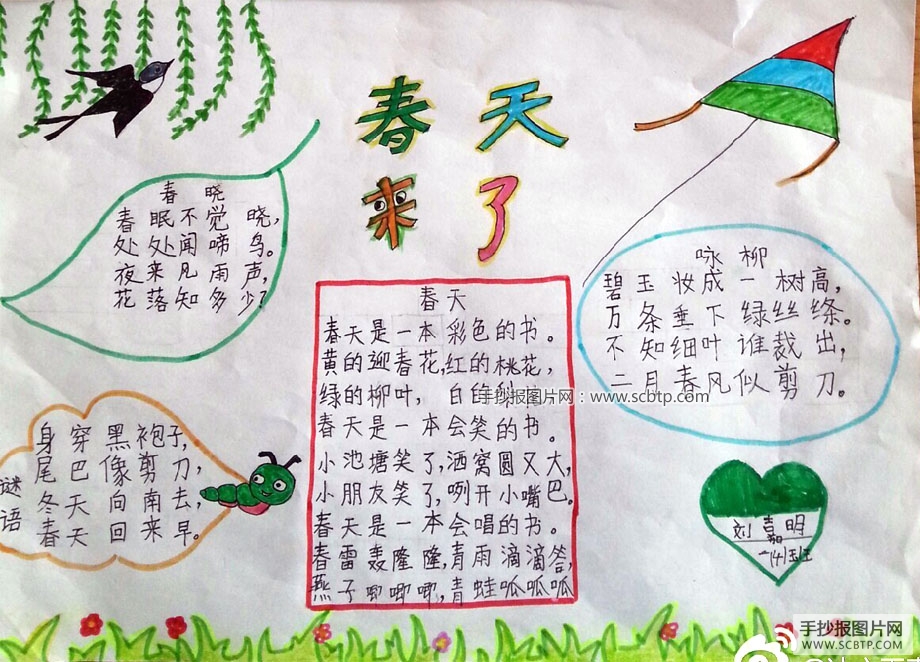 春天
来了
春 晓
春眠不觉晓,
处处闻啼鸟。
夜来风雨声,
花落知多少?
谜语
身穿黑袍子,
尾巴像剪刀,
冬天向南去,
春天回来早。
春天
春天是一本彩色的书。
黄的迎春花,红的桃花,
绿的柳叶, 白的
春天是一本会笑的书。
小池塘笑了,洒窝圆又大,
小朋友笑了,咧开小嘴巴。
春天是一本会唱的书。
春雷轰隆隆,青雨滴滴答,
燕子唧唧唧,青蛙呱呱呱
手抄报图片网：www.scbtp.com
咏柳
碧玉妆成一树高,
万条垂下绿丝绦。
不知细叶谁裁出,
二月春风似剪刀。
刘嘉明
一(4)班
手抄报图片网
WWW.SCBTP.COM